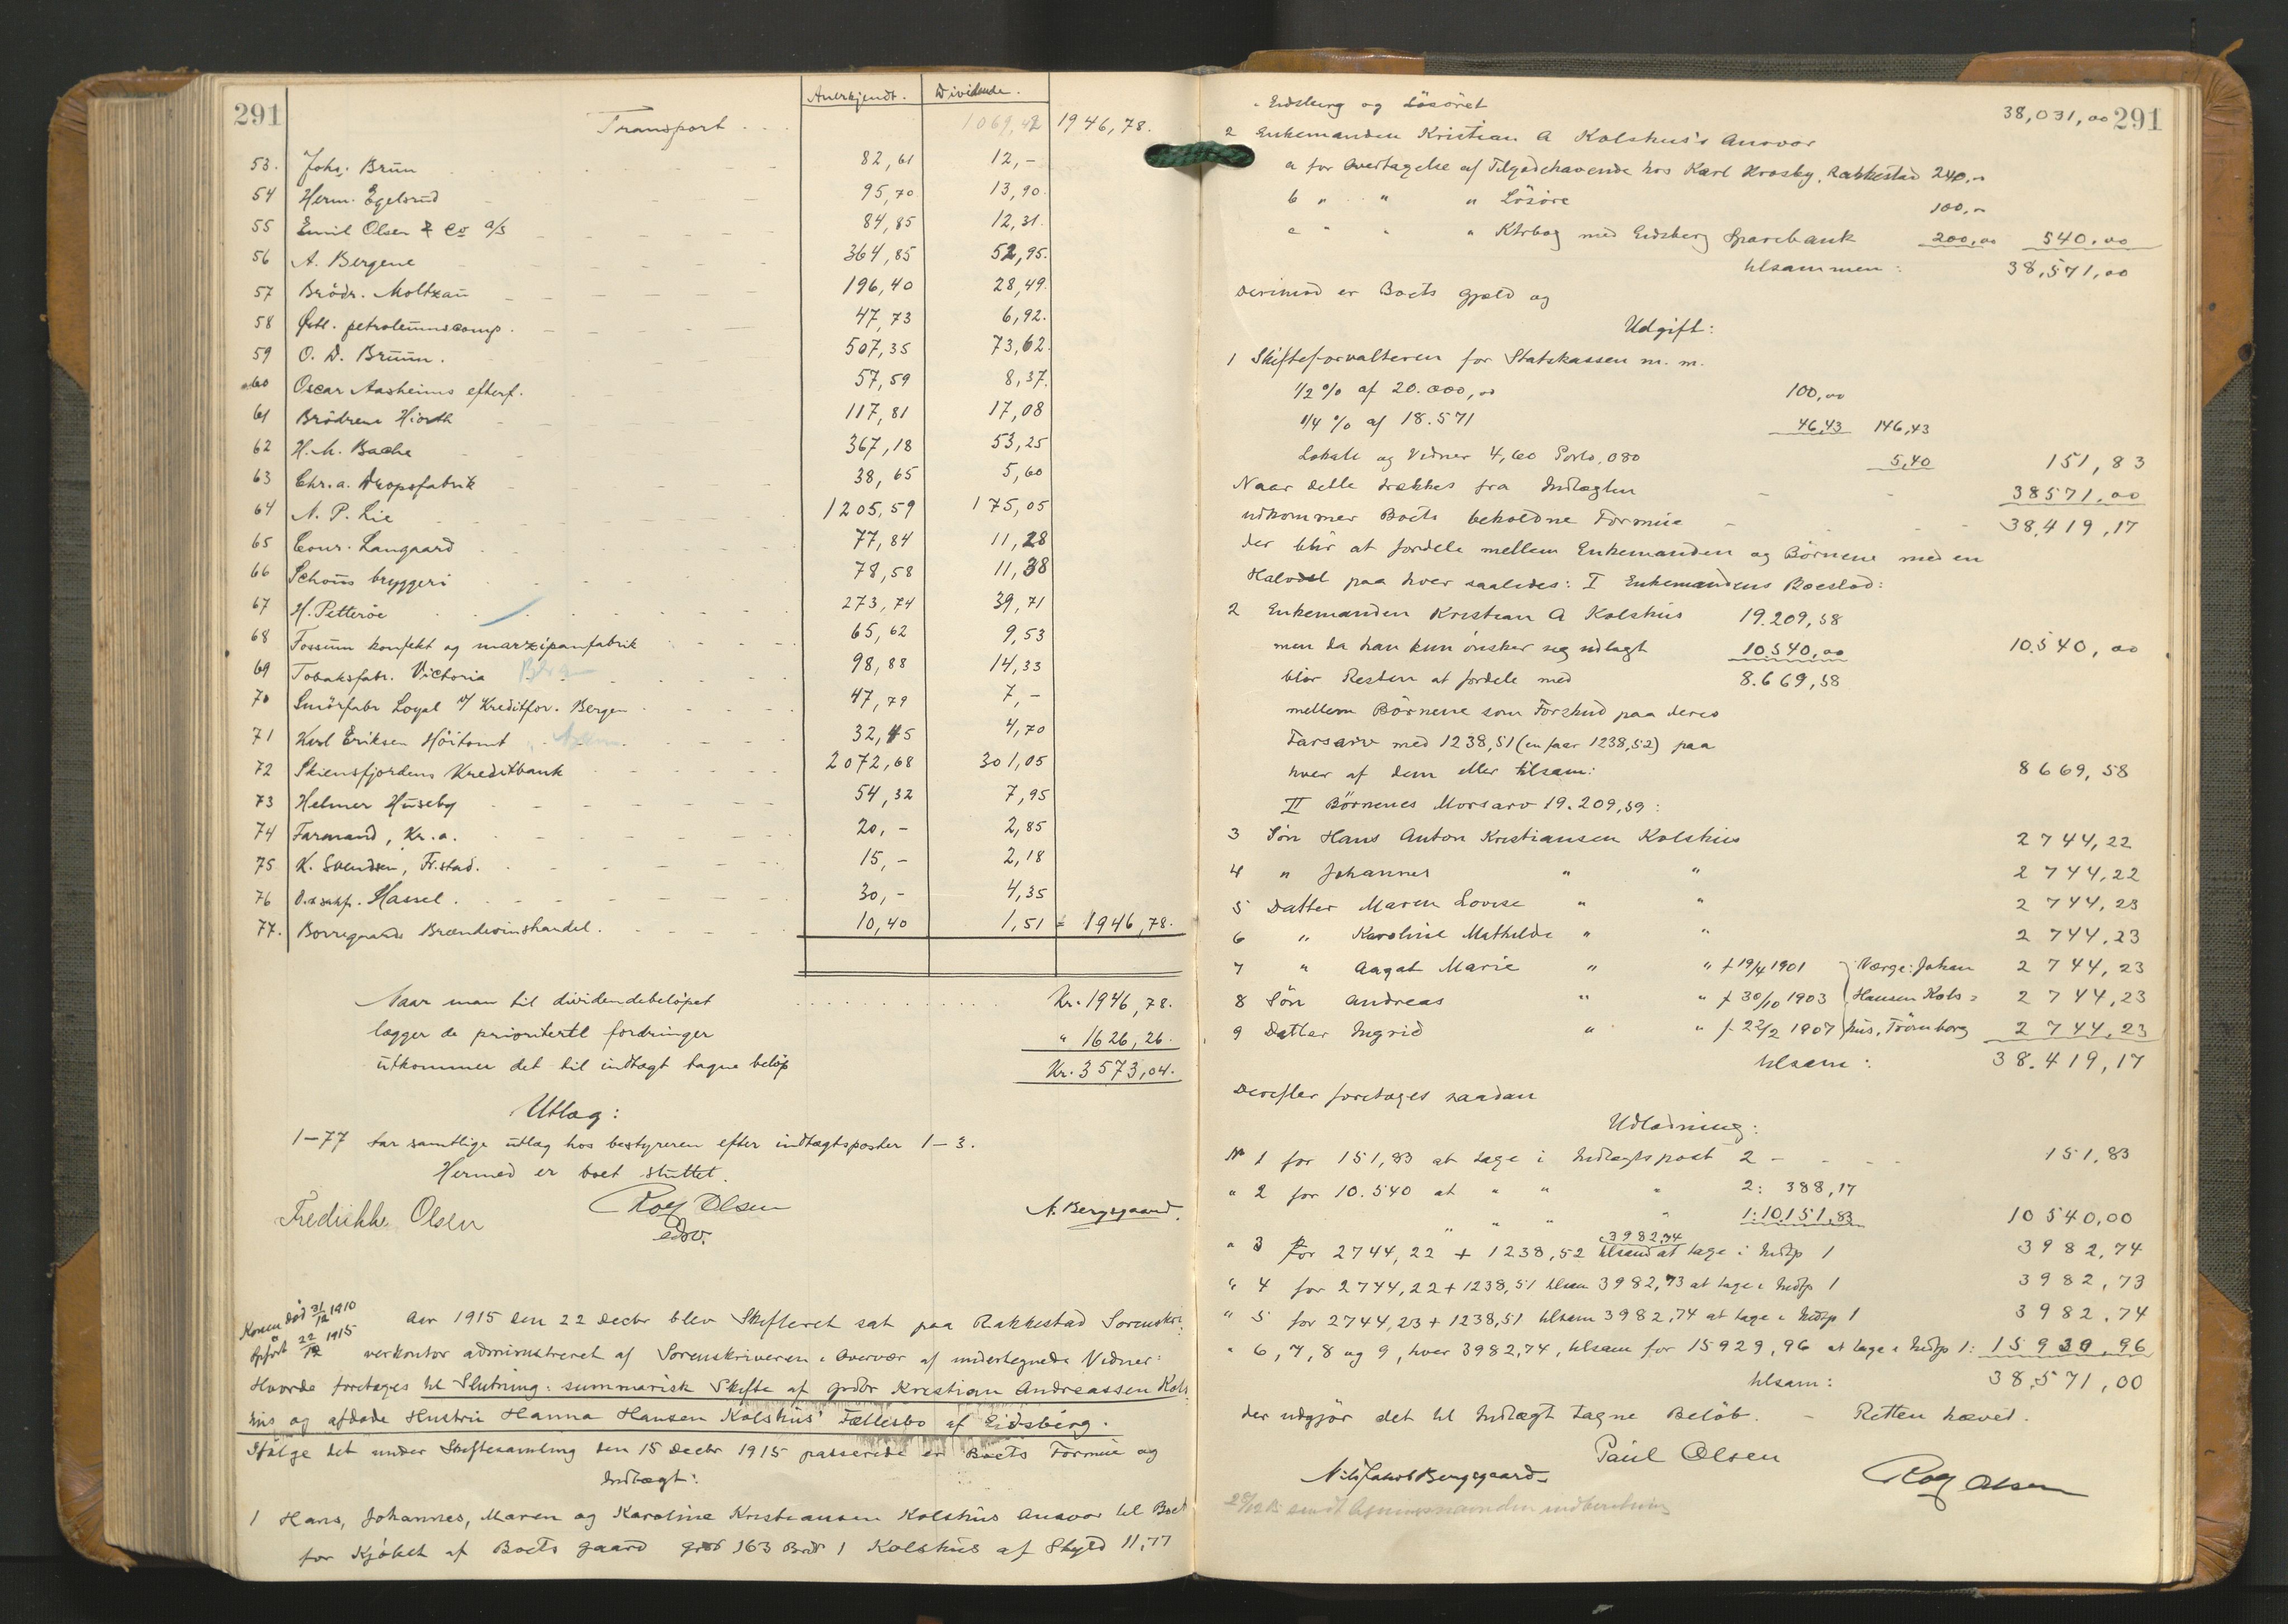 291
Anerkjendt. Dividende.
Transport . . . 1069,42 1946,78.
53. Johs. Brun 82,61 12,-
54 Herm. Egelsrud 95,70 13,90
55 Emil Olsen & Co a/s 84,85 12,31.
56 A. Bergene 364,85 52,95.
57 Brödr. Moltzau 196,40 28,49.
58 Østl. petroleumscomp. 47,73 6,92.
59 O. D. Bruun. 507,35 73,62.
60 Oscar Aasheims efterf. 57,59 8,37.
61 Brödrene Hiorth 117,81 17,08
62 H. M. Bache 367,18 53,25
63 Chr.a. Dropsfabrik 38,65 5,60
64 N. P. Lie 1205,59 175,05
65 Conr. Langaard 77,84 11,28
66 Schous bryggeri 78,58 11,38
67 H. Petterøe 273,74 39,71
68 Fossum konfekt og marzipanfabrik 65,62 9,53
69 Tobaksfabr. Victoria Bergen 98,88 14,33
70 Smörfabr Loyal v/ Kreditfor. Bergen 47,79 7,-
71 Karl Eriksen Höitomt 32,45 4,70
72 Skiensfjordens Kreditbank 2072,68 301,05
73 Helmer Huseby 54,32 7,95
74 Farmand, Kr.a. 20,- 2,85
75 K. Svendsen, Fr.stad. 15,- 2,18
76 Hassel. 30,- 4,35
77. Borregaards Brændevinshandel. 10,40 1,51 = 1946,78.
Naar man til dividendebeløpet . . . Kr. 1946,78.
lægger de prioritertl fordringer " 1626,26.
utkommer det til indtægt tagne beløp Kr. 3573,04.
Utlæg:
1-77 tar samtlige utlæg hos bestyreren efter indtægtsposter 1-3.
Hermed er boet sluttet.
Fredrikke Olsen Rolf Olsen A. Bergsgaard.
edsv.
Konen död 31/12 1910
Aar 1915 den 22 Decbr blev Skifteret sat paa Rakkestad Sorenskri-
Anført 22/12 1915
verkontor administreret af Sorenskriveren i Overvær af undertegnede Vidner:
Hvorda foretages til Slutning: summarisk Skifte af Grdbr Kristian Andreassen Kols-
hus og afdøde Hustru Hanna Hansen Kolshus' Fællesbo af Eidsberg.
Ifølge det under Skiftesamling den 15 Decbr 1915 passerede er Boets Formue og
Indtægt:
1 Hans, Johannes, Maren og Karoline Kristiansen Kolshus Ansvar til Boet
for Kjöbet af Boets gaard Grd 163 Brd 1 Kolshus af Skyld 11,77
i Eidsberg og Lösöret 38,031,00 291
2 Enkemanden Kristian A Kolshus's Ansvar
a for Overtagelse af Tilgodehavende hos Karl Krosby, Rakkestad 240,00
b " " " Lösöre 100,00
c " " " Ktrbog med Eidsberg Sparebank 200,00 540,00
tilsammen: 38,571,00
Derimod er Boets Gjæld og
Udgift:
1 Skifteforvalteren for Statskassen m. m.
1/2 % af 20.000,00 100,00
1/4 % af 18.571 46,43 146,43
Lokale og Vidner 4,60 Porto 0,80 5,40 151,83
Naar dette trækkes fra Indtægten 38571,00
udkommer Boets beholdne Formue 38,419,17
der blir at fordele mellem Enkemanden og Börnene med en
Halvdel paa hver saaledes: I Enkemandens Boeslod:
2 Enkemanden Kristian A Kolshus 19.209,58
men da han kun önsker sig udlagt 10.540,00 10.540,00
blir Resten at fordele med 8.669,58
mellem Börnene som Forskud paa deres
Farsarv med 1238,51 (en faar 1238,52) paa
hver af dem eller tilsam: 8669,58
II Börnenes Morsarv 19.209,59:
3 Sön Hans Anton Kristiansen Kolshus 2744,22
4 " Johannes " " 2744,22
5 Datter Maren Lovise " " 2744,23
6 " Karoline Mathilde " " 2744,23
7 " Aagot Marie " " f 19/4 1901 Værge: Johan 2744,23
8 Sön Andreas " " f 30/10 1903 Hansen Kols- 2744,23
9 Datter Ingrid " " f 22/2 1907 hus, Trömborg 2744,23
tilsam: 38.419,17
Derefter foretages saadan
Udlodning:
No 1 for 151,83 at tage i Indtægtspost 2 - 151,83
" 2 for 10.540 at " " " 2: 388,17
" " " " 1: 10.151,83 10540,00
" 3 for 2744,22 + 1238,52 tilsam 3982,74 at tage i Indtp 1 3982,74
" 4 for 2744,22 + 1238,51 tilsam 3982,73 at tage i Indtp 1 3982,73
" 5 for 2744,23 + 1238,51 tilsam 3982,74 at tage i Indtp 1 3982,74
" 6, 7, 8 og 9, hver 3982,74, tilsam for 15929,96 at tage i Indtp 1: 15930,96
tilsam: 38,571,00
der udgjör det til Indtægt tagne Belöb. - Retten hævet.
Paul Olsen
Nils Jakob Bergsgaard Rolf Olsen